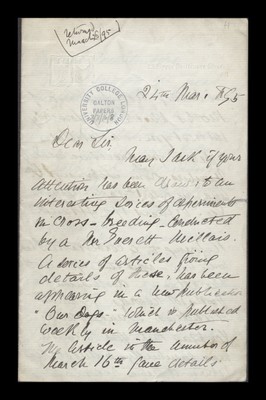 returned
March 28/95
UNIVERSITY COLLEGE LONDON
GALTON
PAPERS
24th Mar. 1895
Dear Sir,
May I ask if your
attention has been drawn to an
interesting series of experiments
in cross-breeding - conducted
by a Mr Everett Millais.
A series of articles giving
details of these, has been
appearing in a new publication
"Our Dogs" - which is published
weekly in Manchester.
The article in the number of
March 16th gave details